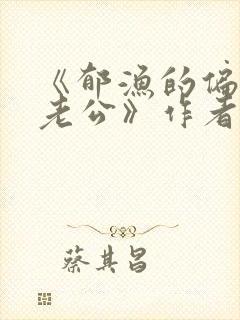 《郁渔的偏
老公》作者
蔡其昌